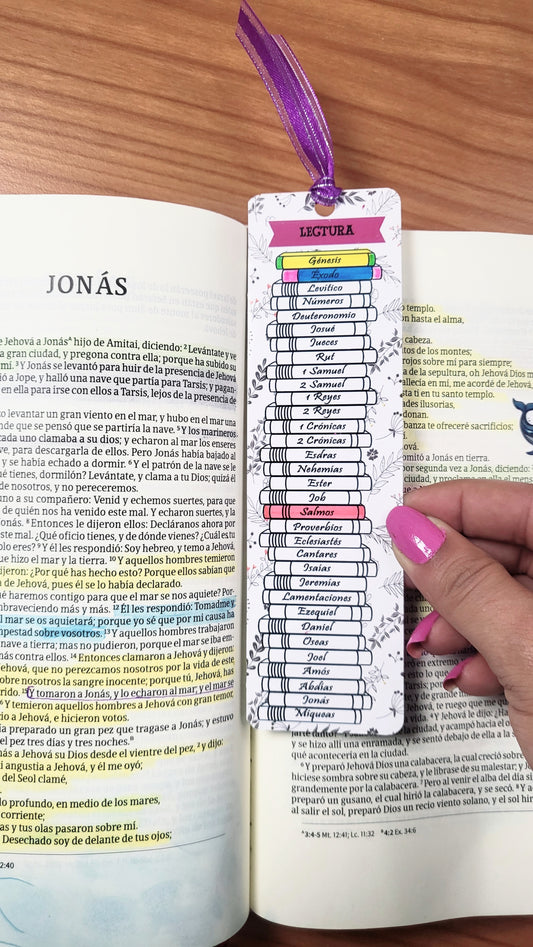 JONÁS
e Jehová a Jonásᴬ hijo de Amitai, diciendo: ²Levántate y ve
a gran ciudad, y pregona contra ella; porque ha subido su
mí. ³Y Jonás se levantó para huir de la presencia de Jehová
ió a Jope, y halló una nave que partía para Tarsis; y pagan-
en ella para irse con ellos a Tarsis, lejos de la presencia de
zo levantar un gran viento en el mar, y hubo en el mar una
nde que se pensó que se partiría la nave. ⁵Y los marineros
cada uno clamaba a su dios; y echaron al mar los enseres
ve, para descargarla de ellos. Pero Jonás había bajado al
y se había echado a dormir. ⁶Y el patrón de la nave se le
ué tienes, dormilón? Levántate, y clama a tu Dios; quizá él
de nosotros, y no pereceremos.
uno a su compañero: Venid y echemos suertes, para que
de quién nos ha venido este mal. Y echaron suertes, y la
Jonás. ⁸Entonces le dijeron ellos: Decláranos ahora por
este mal. ¿Qué oficio tienes, y de dónde vienes? ¿Cuál es tu
blo eres? ⁹Y él les respondió: Soy hebreo, y temo a Jehová,
ue hizo el mar y la tierra. ¹⁰Y aquellos hombres temieron
dijeron: ¿Por qué has hecho esto? Porque ellos sabían que
a de Jehová, pues él se lo había declarado.
ué haremos contigo para que el mar se nos aquiete? Por-
mbraveciendo más y más. ¹²Él les respondió: Tomadme y
l mar se os aquietará; porque yo sé que por mi causa ha
mpestad sobre vosotros. ¹³Y aquellos hombres trabajaron
nave a tierra; mas no pudieron, porque el mar se iba em-
ás contra ellos. ¹⁴Entonces clamaron a Jehová y dijeron:
ehová, que no perezcamos nosotros por la vida de este
obre nosotros la sangre inocente; porque tú, Jehová, has
rido. ¹⁵Y tomaron a Jonás, y lo echaron al mar; y el mar se
⁶Y temieron aquellos hombres a Jehová con gran temor,
io a Jehová, e hicieron votos.
a preparado un gran pez que tragase a Jonás; y estuvo
el pez tres días y tres noches.ᴮ
ás a Jehová su Dios desde el vientre del pez, ²y dijo:
i angustia a Jehová, y él me oyó;
del Seol clamé,
lo profundo, en medio de los mares,
corriente;
as y tus olas pasaron sobre mí.
Desechado soy de delante de tus ojos;
2:40
LECTURA
Génesis
Éxodo
Levítico
Números
Deuteronomio
Josué
Jueces
Rut
1 Samuel
2 Samuel
1 Reyes
2 Reyes
1 Crónicas
2 Crónicas
Esdras
Nehemías
Ester
Job
Salmos
Proverbios
Eclesiastés
Cantares
Isaías
Jeremías
Lamentaciones
Ezequiel
Daniel
Oseas
Joel
Amós
Abdías
Jonás
Miqueas
o templo.
on hasta el alma,
cabeza.
tos de los montes;
rojos sobre mí para siempre;
a de la sepultura, oh Jehová Dios m
allecía en mí, me acordé de Jehová,
ta ti en tu santo templo.
ades ilusorias,
donan.
banza te ofreceré sacrificios;
ó a Jonás en tierra.
por segunda vez a Jonás, diciendo:
⁴Y Jehová le dijo: ¿Ha
y acampó hacia el o
y se hizo allí una enramada, y se sentó debajo de ella a
qué acontecería en la ciudad.
⁶Y preparó Jehová Dios una calabacera, la cual creció sobre
hiciese sombra sobre su cabeza, y le librase de su malestar; y Jo
grandemente por la calabacera. ⁷Pero al venir el alba del día si
preparó un gusano, el cual hirió la calabacera, y se secó. ⁸Y a
al salir el sol, preparó Dios un recio viento solano, y el sol hir
ᴬ3:4-5 Mt. 12:41; Lc. 11:32 ᴬ4:2 Ex. 34:6